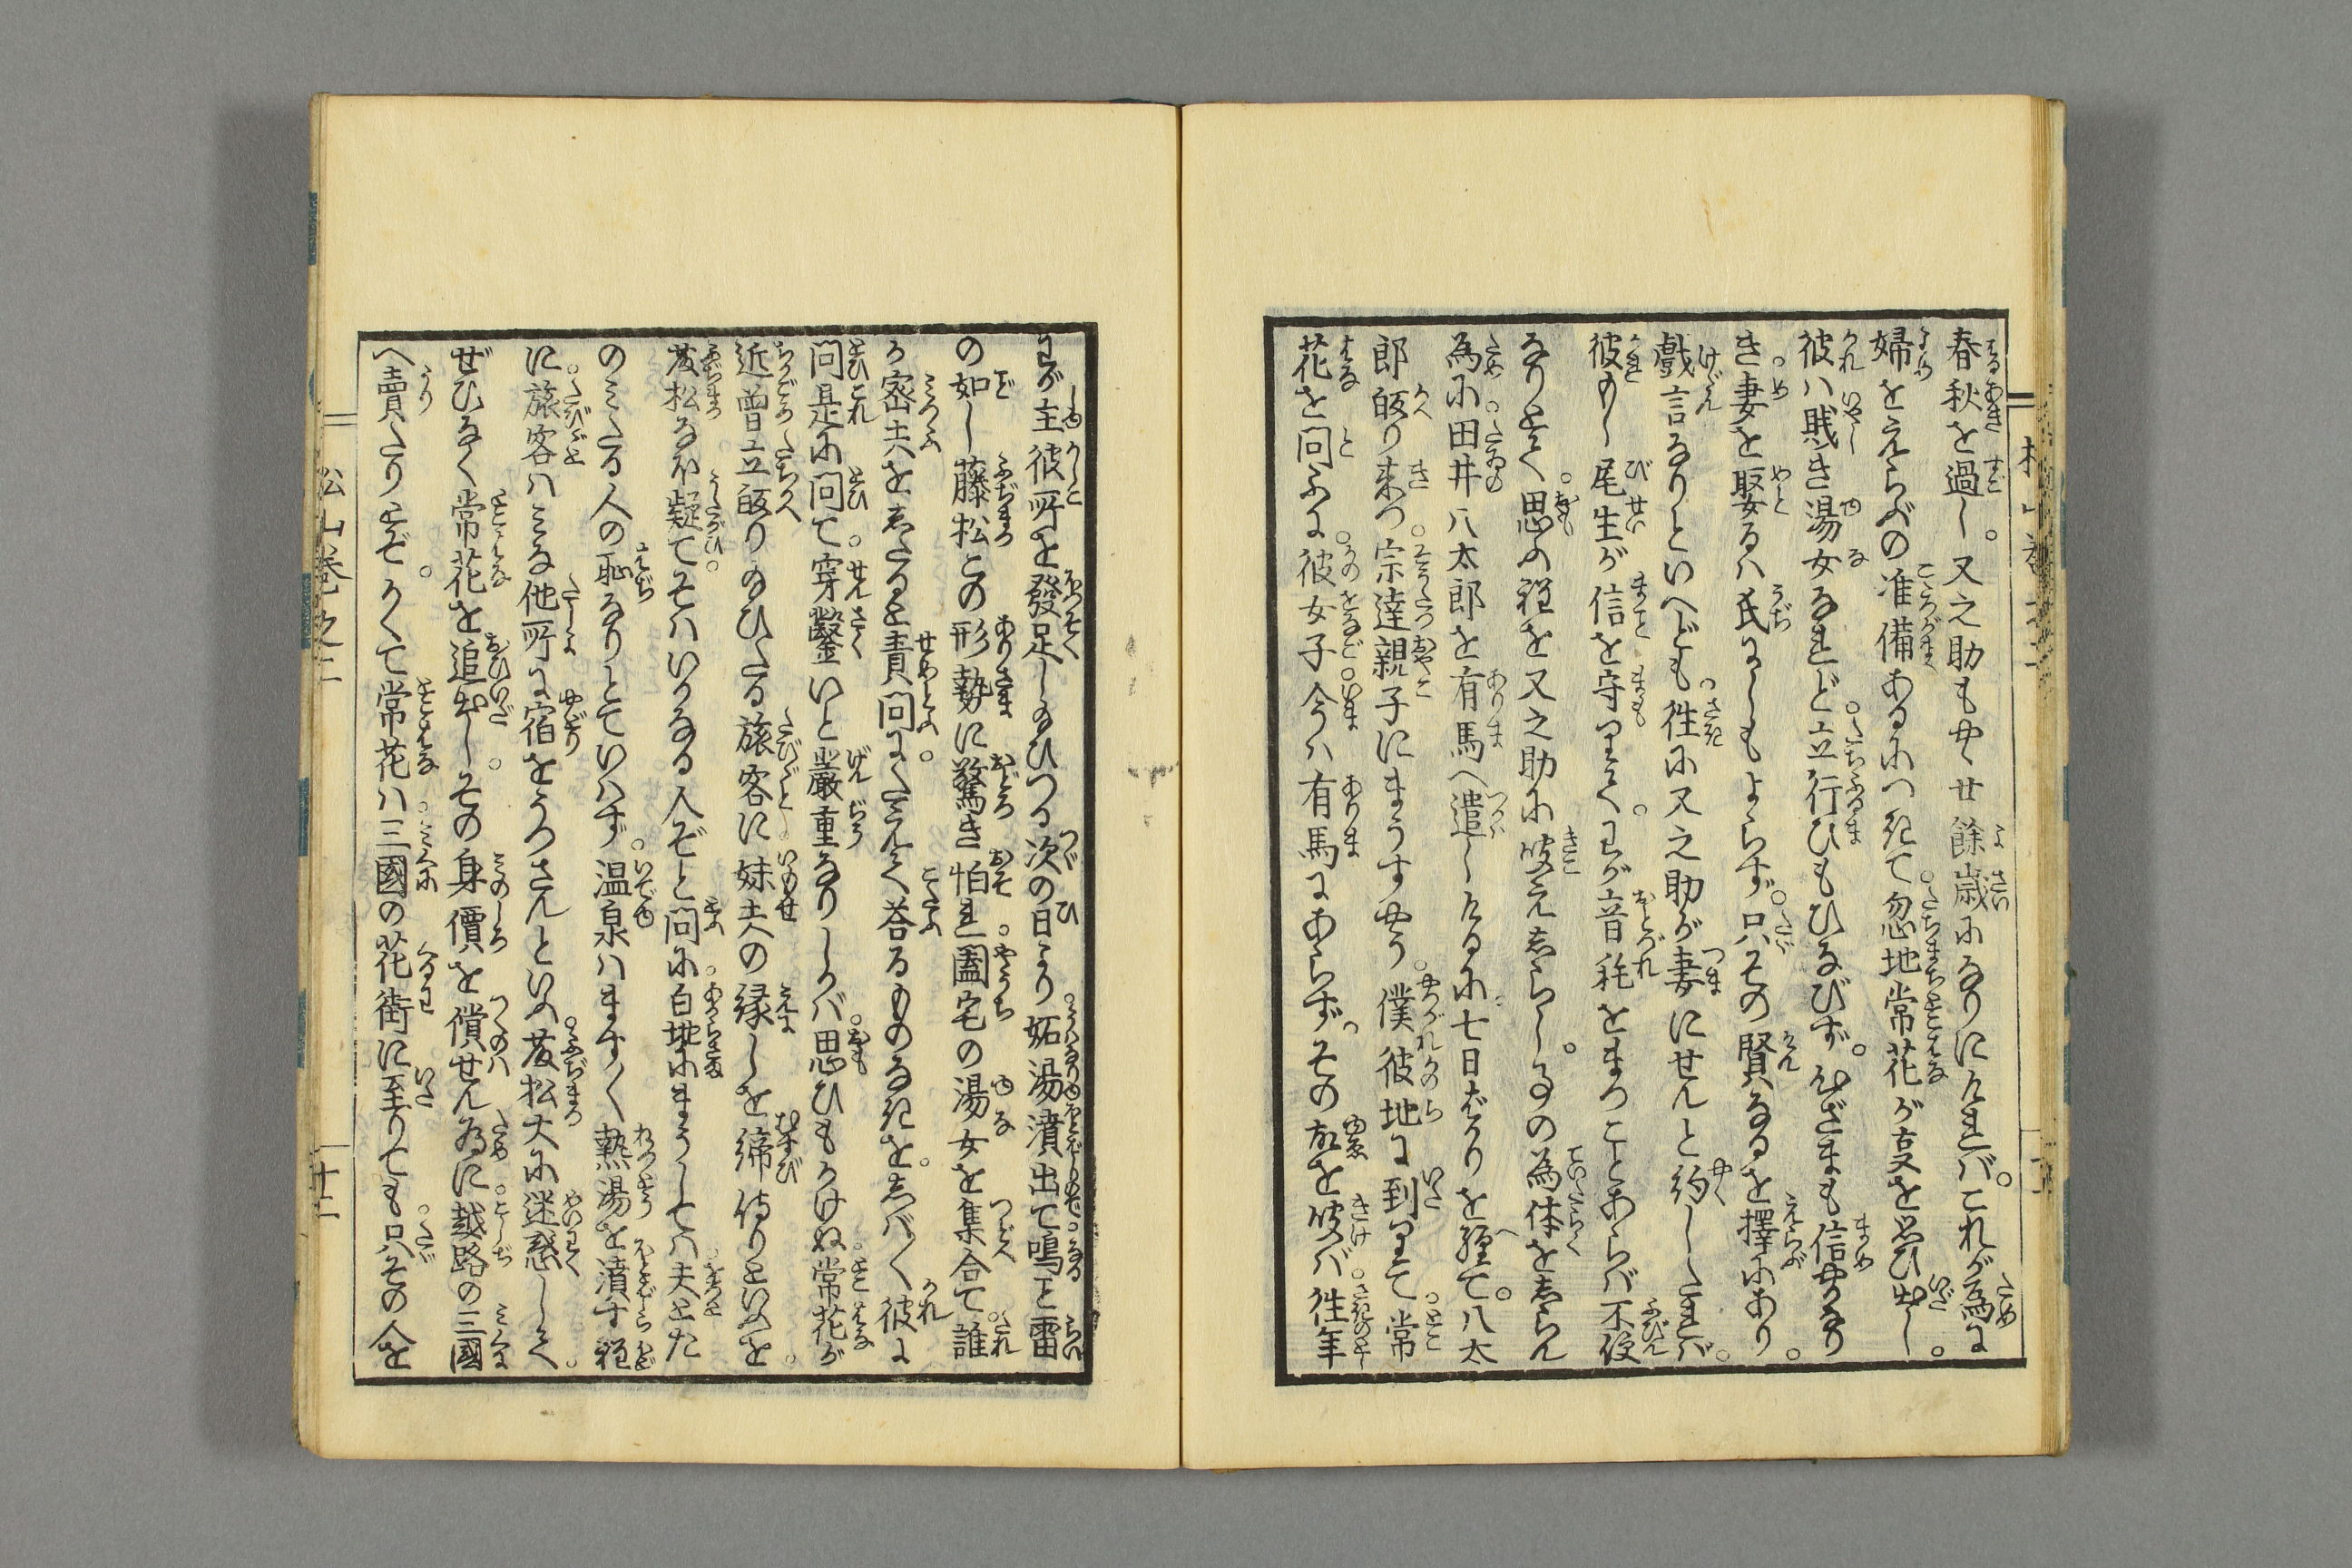 春秋を過し。又之助もやゝ廿餘歳になりにければ。これが為に
婦をえらぶの准備あるにつきて。忽地常花が叓を思ひ出し。
彼ハ賤き湯女なれど。立行ひもひなびず。心ざまも信やかなり
き妻を娶るハ氏にしもよらず。只その賢なるを擇にあり。
戯言なりといへども。徃に又之助が妻にせんと約したれバ。
彼もし尾生が信を守りて。わが音耗をまつことあらバ不便
なりとて。思ふ程を又之助に聞えしらし。事の為体をしらん
為に。田井八太郎を有馬へ遣しけるに。七日ばかりを經て。八太
郎皈り来つ。宗達親子にまうすやう。僕彼地に到りて。常
花を問ふに。彼女子今ハ有馬にあらず。その故を聞バ。徃年
わが主彼所を發足し給ひつる次の日より。妬湯濆出て。鳴こと雷
の如し藤松この形勢に驚き怕れ。闔宅の湯女を集合て。誰
か密夫をしたると責問に。たえて荅るものなきを。しば〱彼に
問是に問て。穿鑿いと嚴重なりしかバ。思ひもかけぬ常花が
近曽立皈り給ひたる旅客に。妹夫の縁しを締侍りといふを。
藤松なほ疑て。そハいかなる人ぞと問に。白地にまうしてハ。夫とた
のみたる人の恥なりとていハず。温泉ハます〱熱湯を濆す程
に。旅客ハみな他所に宿をうつさんといふ。藤松大に迷惑して。
ぜひなく常花を追出し。その身價を償せん為に。越路の三國
へ賣たりとぞ。かくて常花ハ。三國の花街に至りても。只その人を
松山巻之二
十二